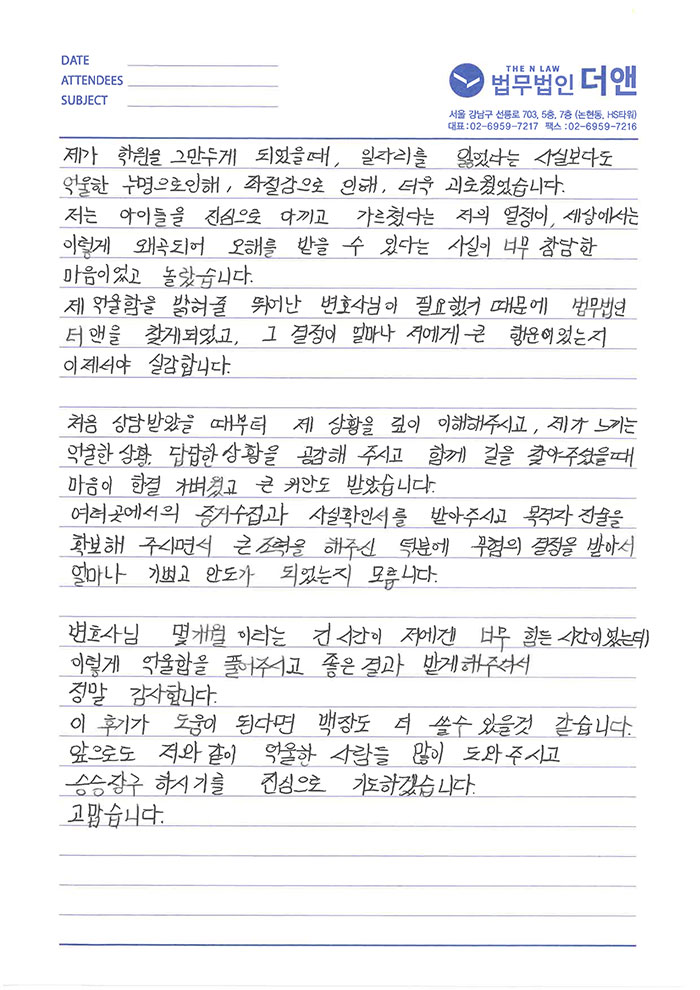 DATE
ATTENDEES
SUBJECT
THE N LAW
법무법인 더앤
서울 강남구 선릉로 703, 5층, 7층 (논현동, HS타워)
대표:02-6959-7217 팩스:02-6959-7216
제가 학원을 그만두게 되었을때, 일자리를 잃었다는 사실보다도
억울한 누명으로인해, 좌절감으로 인해, 더욱 괴로웠었습니다.
저는 아이들을 진심으로 아끼고 가르쳤다는 저의 열정이, 세상에서는
이렇게 왜곡되어 오해를 받을 수 있다는 사실이 너무 참담한
마음이었고 놀랐습니다.
제 억울함을 밝혀줄 뛰어난 변호사님이 필요했기 때문에 법무법인
더앤을 찾게되었고, 그 결정이 얼마나 저에게 큰 행운이었는지
이제서야 실감합니다.
처음 상담받았을 때부터 제 상황을 깊이 이해해주시고, 제가 느끼는
억울한 상황, 답답한 상황을 공감해 주시고 함께 길을 찾아주셨을때
마음이 한결 가벼웠고 큰 위안도 받았습니다.
여러곳에서의 증거수집과 사실확인서를 받아주시고 목격자 진술을
확보해 주시면서 큰 조력을 해주신 덕분에 무혐의 결정을 받아서
얼마나 기쁘고 안도가 되었는지 모릅니다.
변호사님 몇개월 이라는 긴 시간이 저에겐 너무 힘든 시간이었는데
이렇게 억울함을 풀어주시고 좋은 결과 받게해주셔서
정말 감사합니다.
이 후기가 도움이 된다면 백장도 더 쓸수 있을것 같습니다.
앞으로도 저와 같이 억울한 사람들 많이 도와주시고
승승장구 하시기를 진심으로 기도하겠습니다.
고맙습니다.